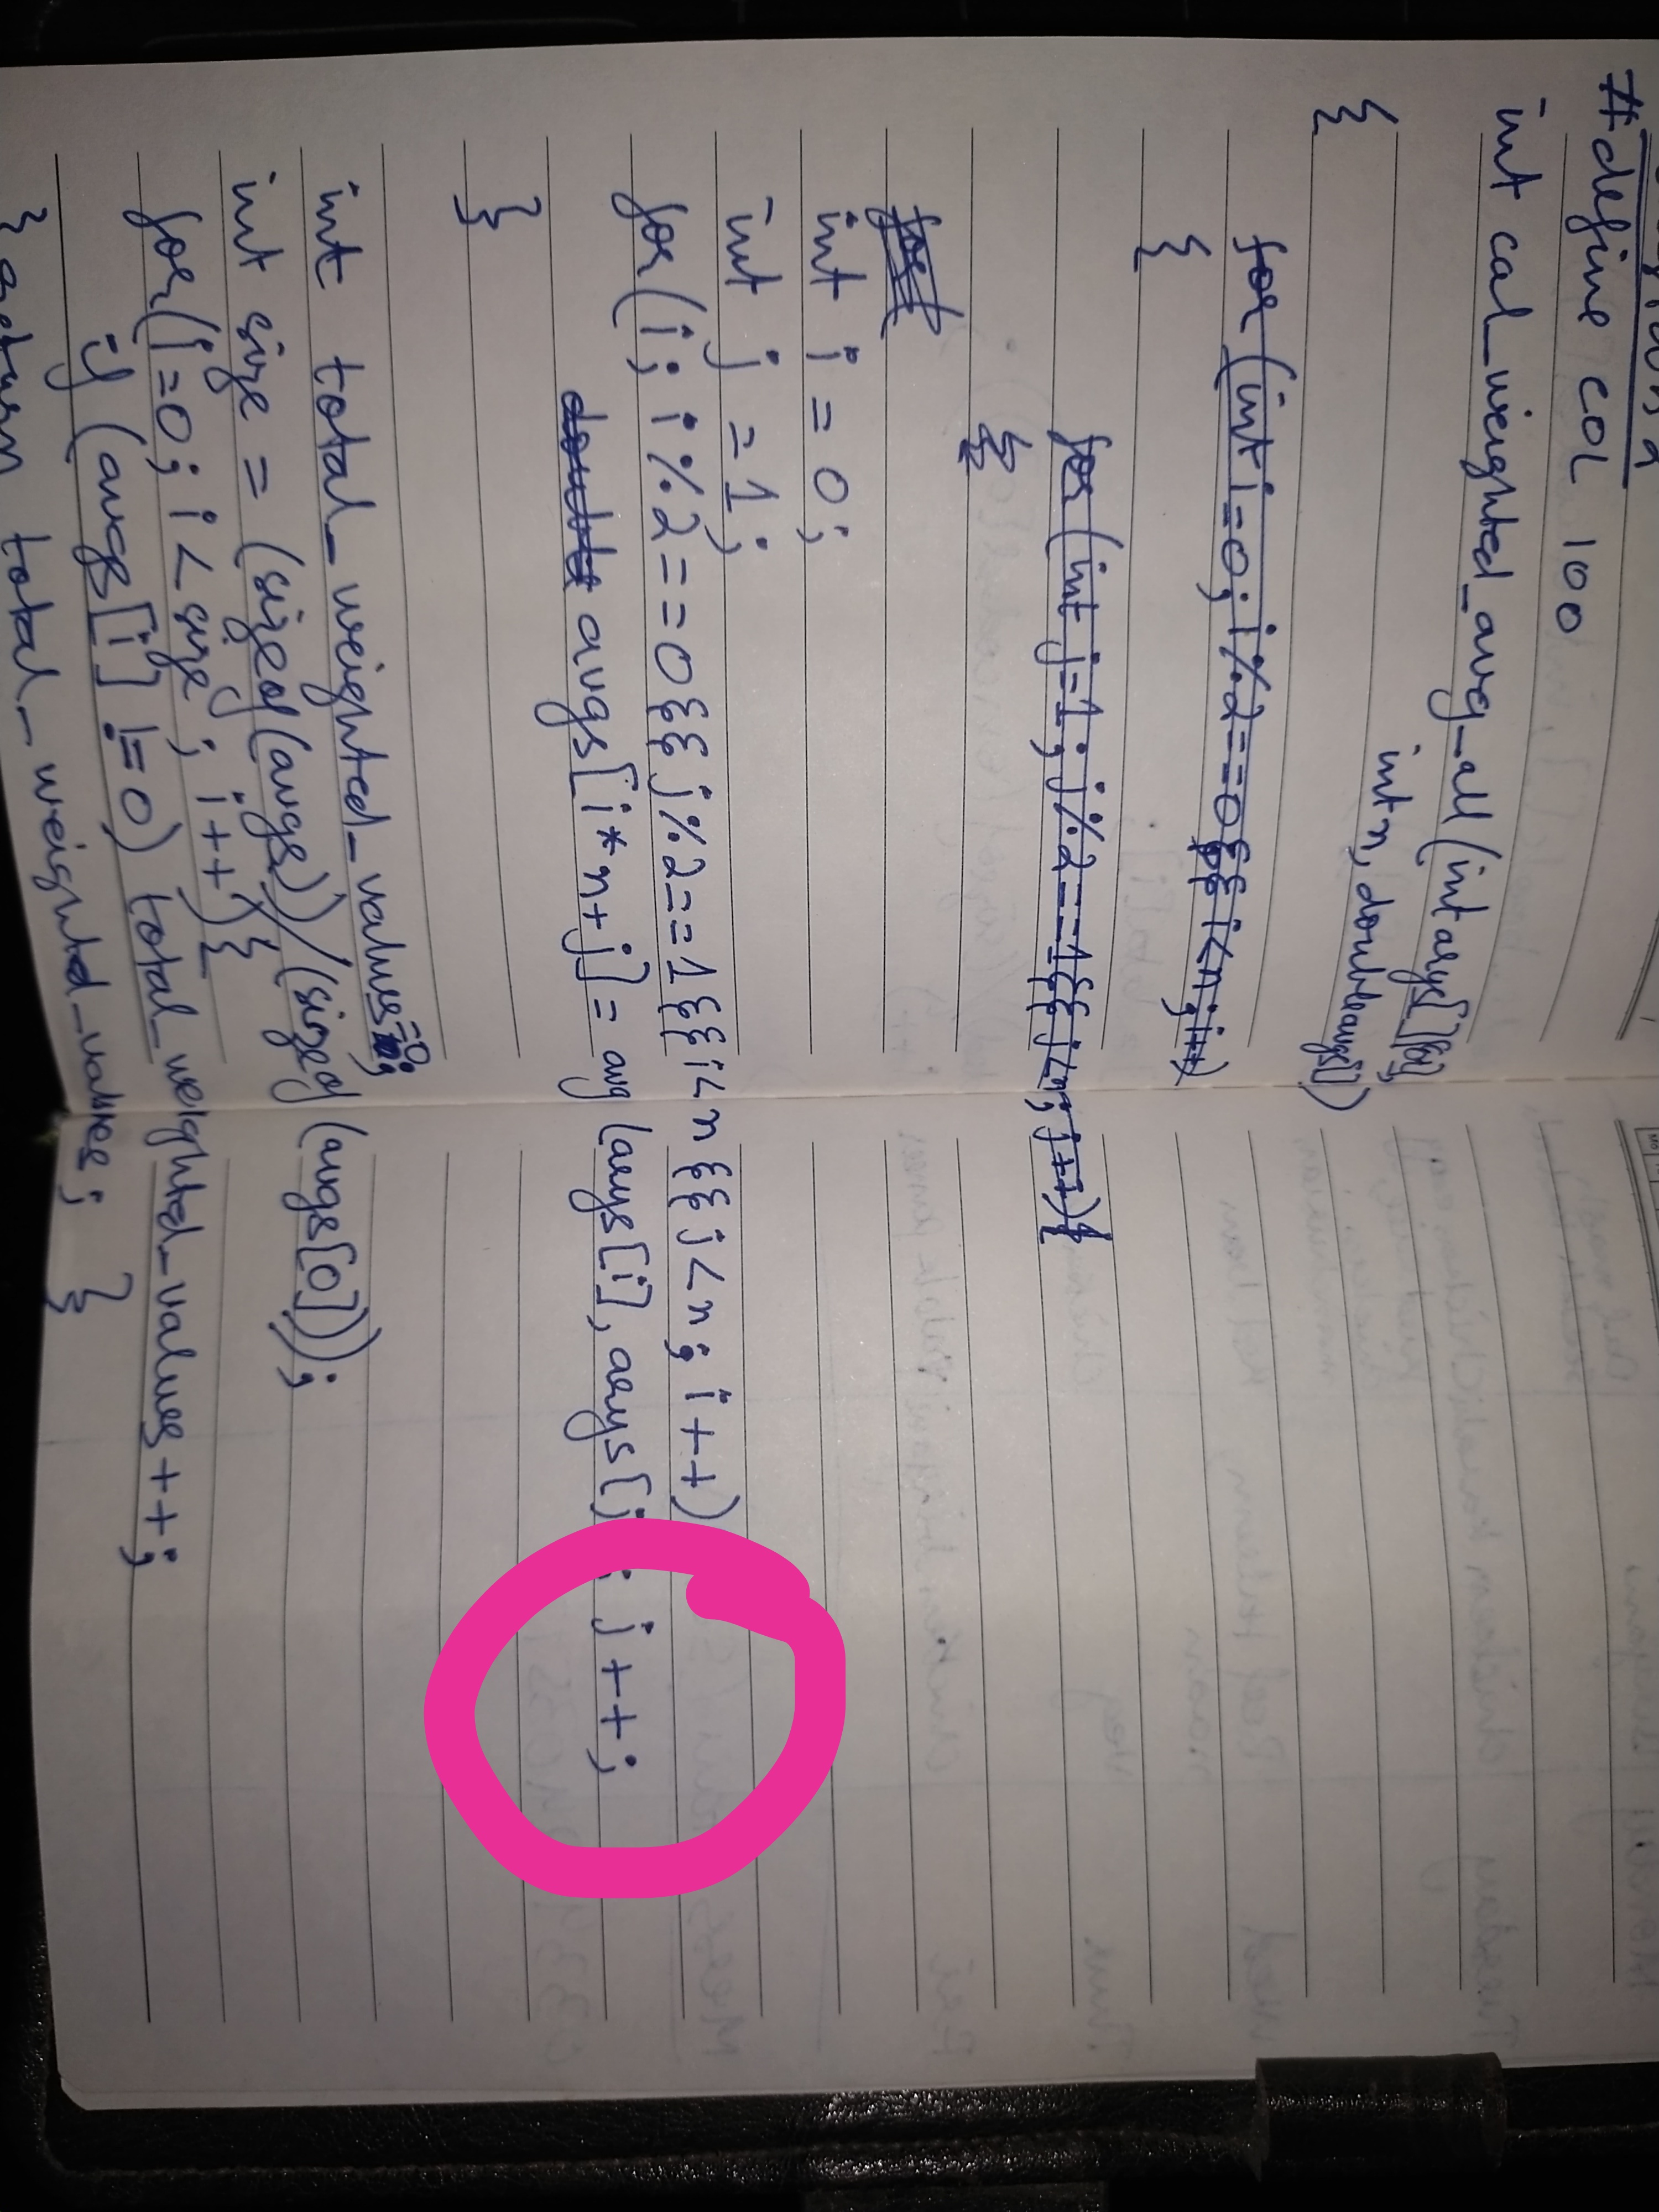 #define COL 100
int cal_weighted_avg_all(int arys[][COL],
int n, double avgs[])
{
for(int i=0; i%2==0 && i<n; i++)
{
for(int j=1; j%2==1 && j<n; j++){
for
int i = 0;
int j = 1;
for(i; i%2==0 && j%2==1 && i<n && j<n; i++)
double avgs[i*n+j] = avg (arys[i], arys[j ; j++;
}
int total_weighted_values=0;
int size = (sizeof(avgs)/(sizeof(avgs[0]));
for(i=0; i<size; i++){
if (avgs[i] !=0) total_weighted_values++;
} return total_weighted_values; }